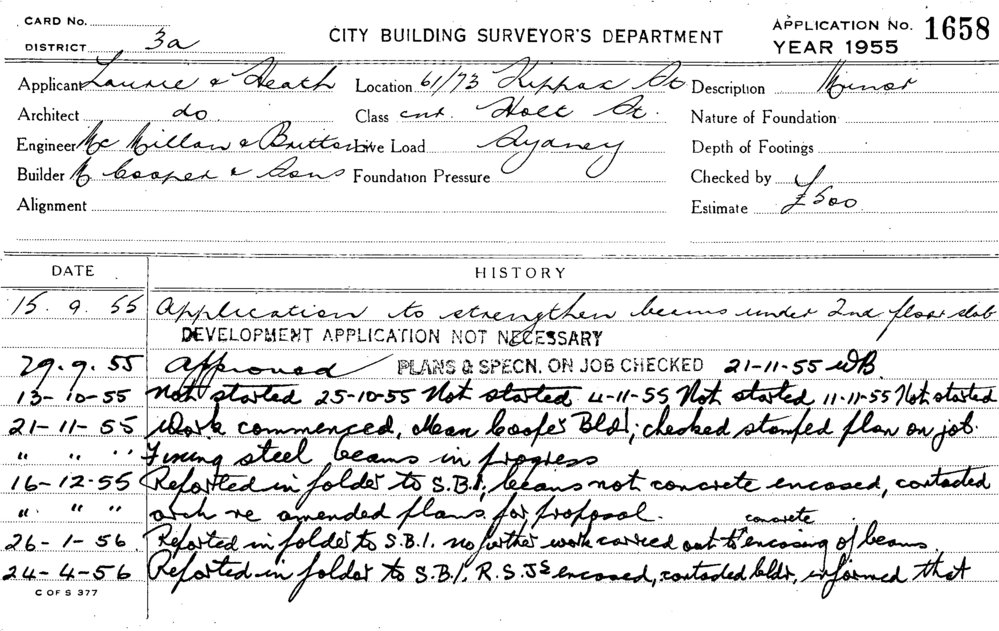 CARD No.
DISTRICT 3a
CITY BUILDING SURVEYOR'S DEPARTMENT
APPLICATION No. 1658
YEAR 1955
Applicant Laurie & Heath Location 61/73 Kippax St Description Minor
Architect do. Class cnr. Holt St. Nature of Foundation
Engineer McMillan & Britton Live Load Sydney Depth of Footings
Builder M Cooper & Sons Foundation Pressure Checked by
Alignment Estimate £500
DATE HISTORY
15. 9. 55 Application to strengthen beams under 2nd floor slab
DEVELOPMENT APPLICATION NOT NECESSARY
29.9.55 Approved PLANS & SPECN. ON JOB CHECKED 21-11-55 WB
13-10-55 Not started 25-10-55 Not started 4-11-55 Not started 11-11-55 Not started
21-11-55 Work commenced, Cooper Bldr; checked stamped plan on job.
" " " Fixing steel beams in progress
16-12-55 Reported in folder to S.B.I., beams not concrete encased, contacted
" " " arch re amended plans for proposal.
26-1-56. Reported in folder to S.B.I. no further work carried out to concrete encasing of beams.
24-4-56 Reported in folder to S.B.I. R.S.Js encased, contacted bldr, informed that
C OF S 377